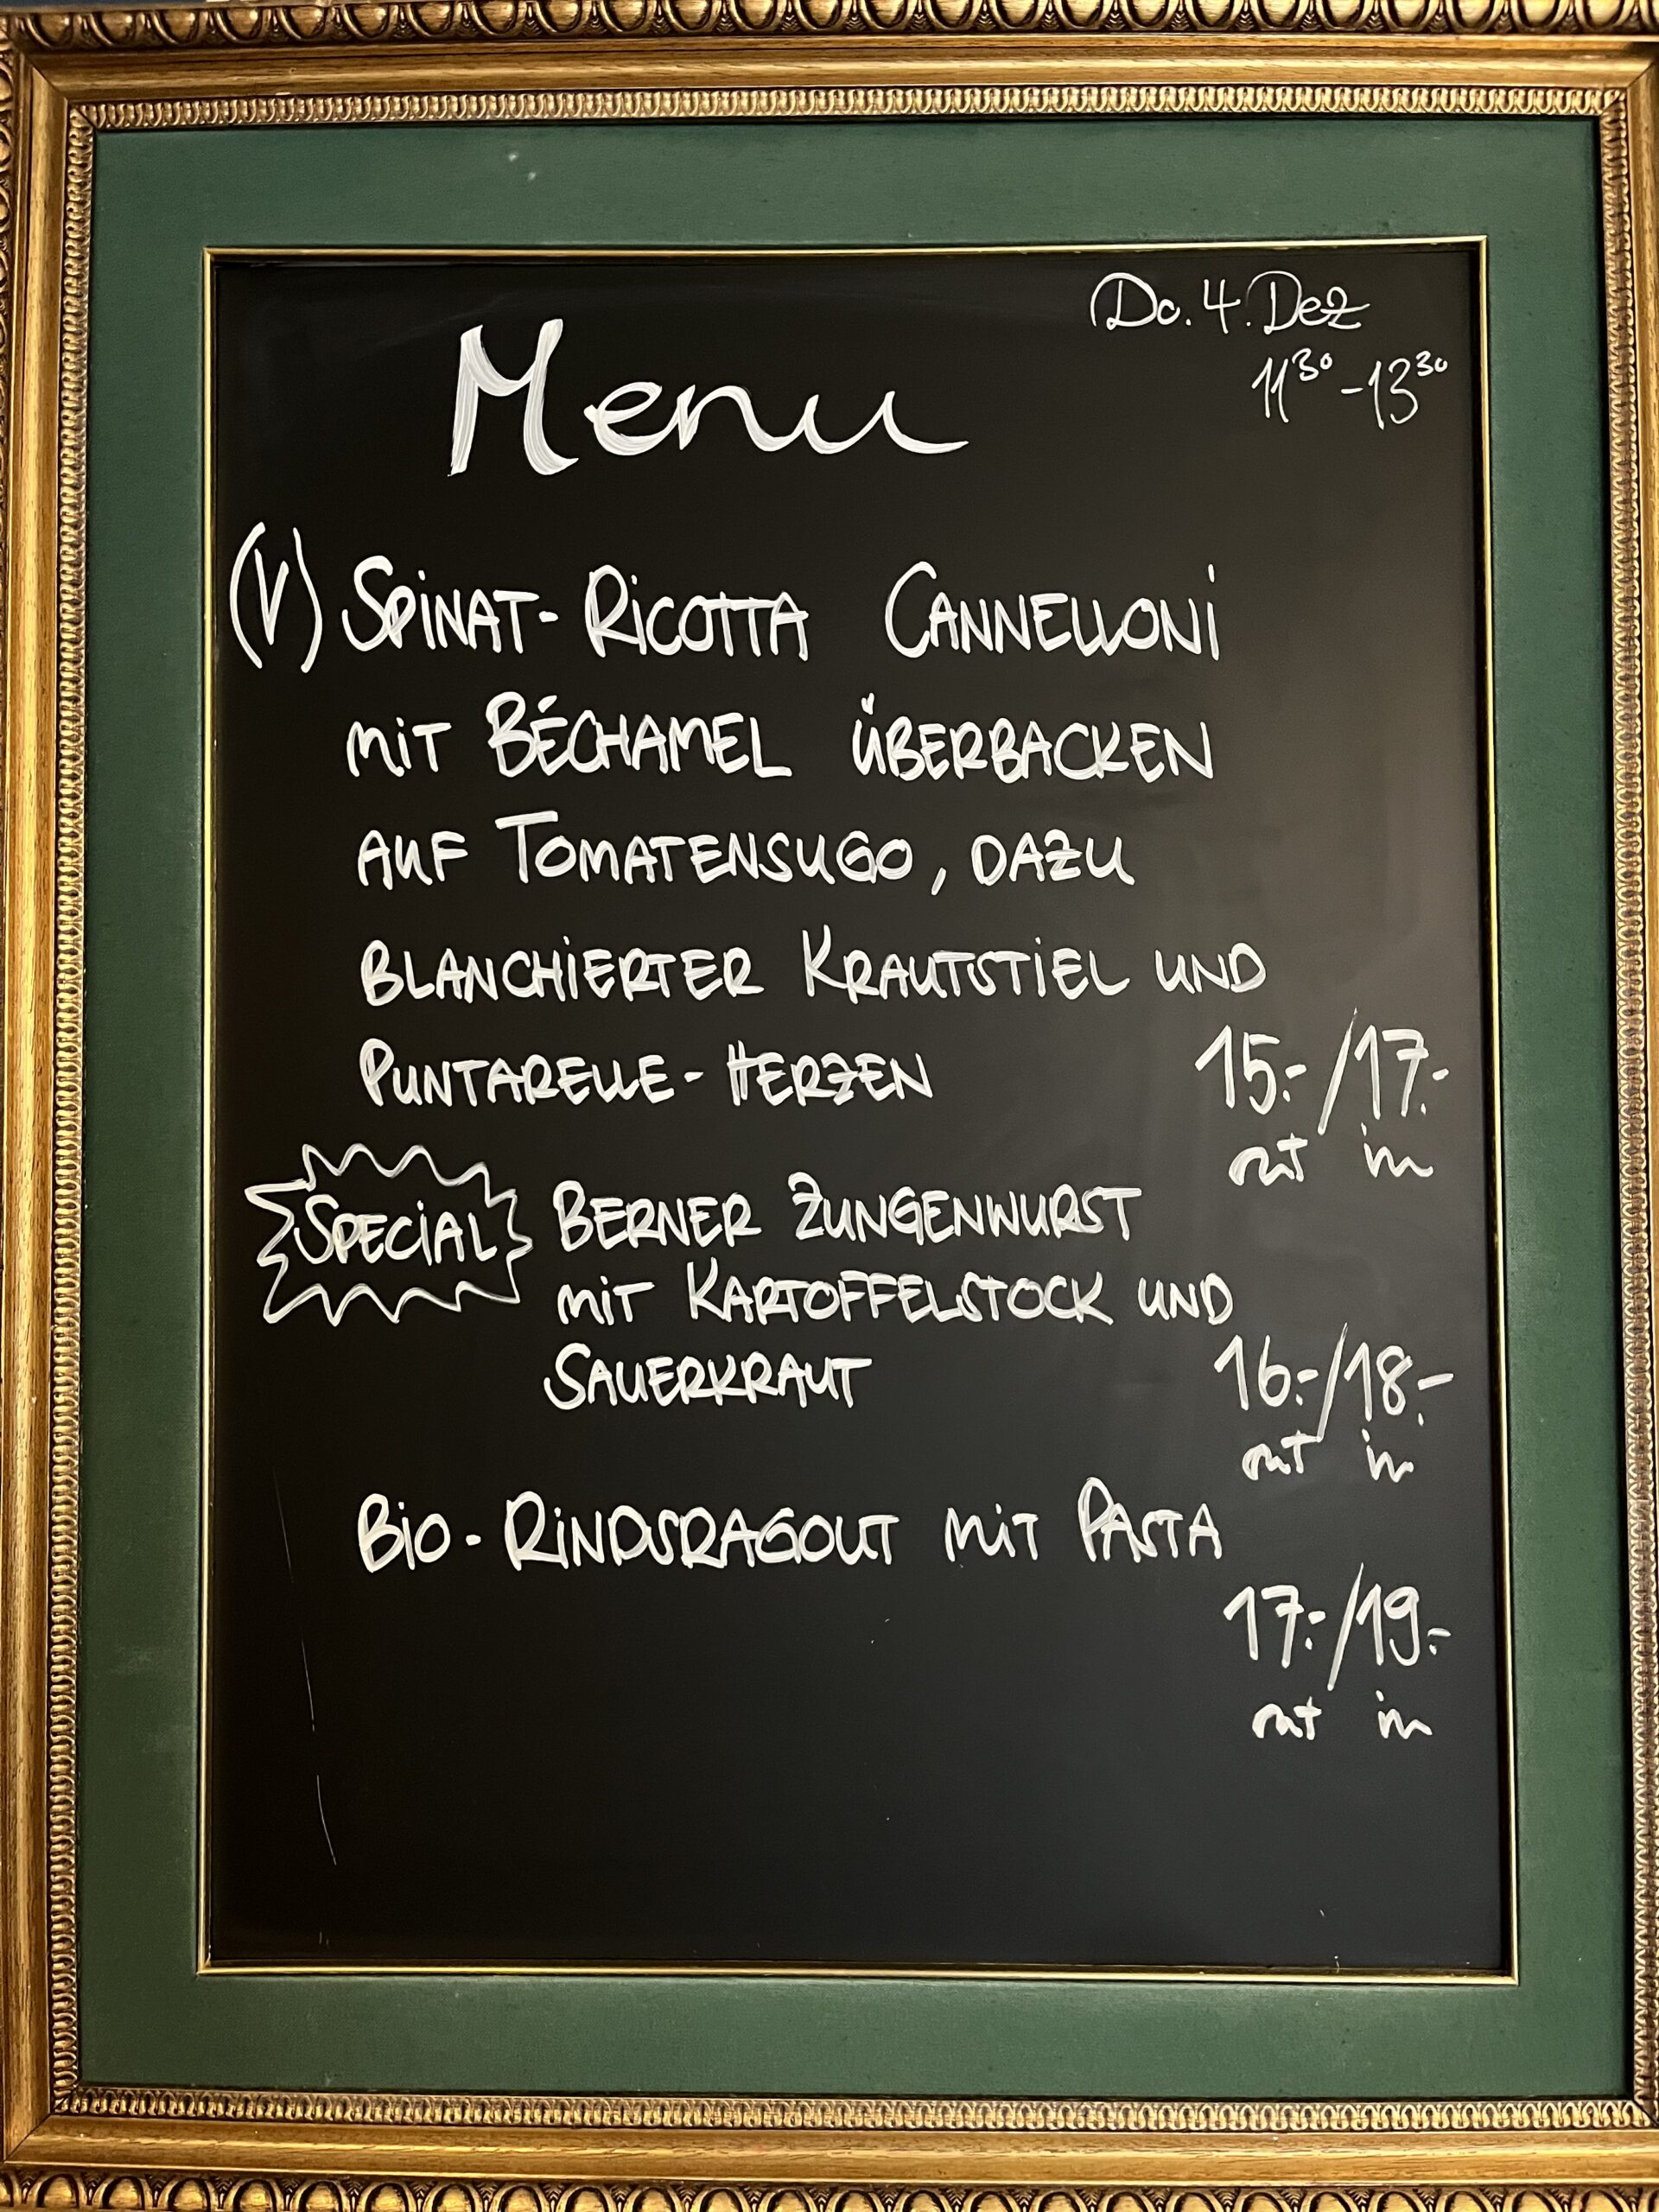 Do. 4. Dez
11³⁰ - 13³⁰
Menu
(V) SPINAT-RICOTTA CANNELLONI
MIT BÉCHAMEL ÜBERBACKEN
AUF TOMATENSUGO, DAZU
BLANCHIERTER KRAUTSTIEL UND
PUNTARELLE-HERZEN 15.-/17.-
out in
SPECIAL BERNER ZUNGENWURST
MIT KARTOFFELSTOCK UND
SAUERKRAUT 16.-/18.-
out in
BIO-RINDSRAGOUT MIT PASTA
17.-/19.-
out in